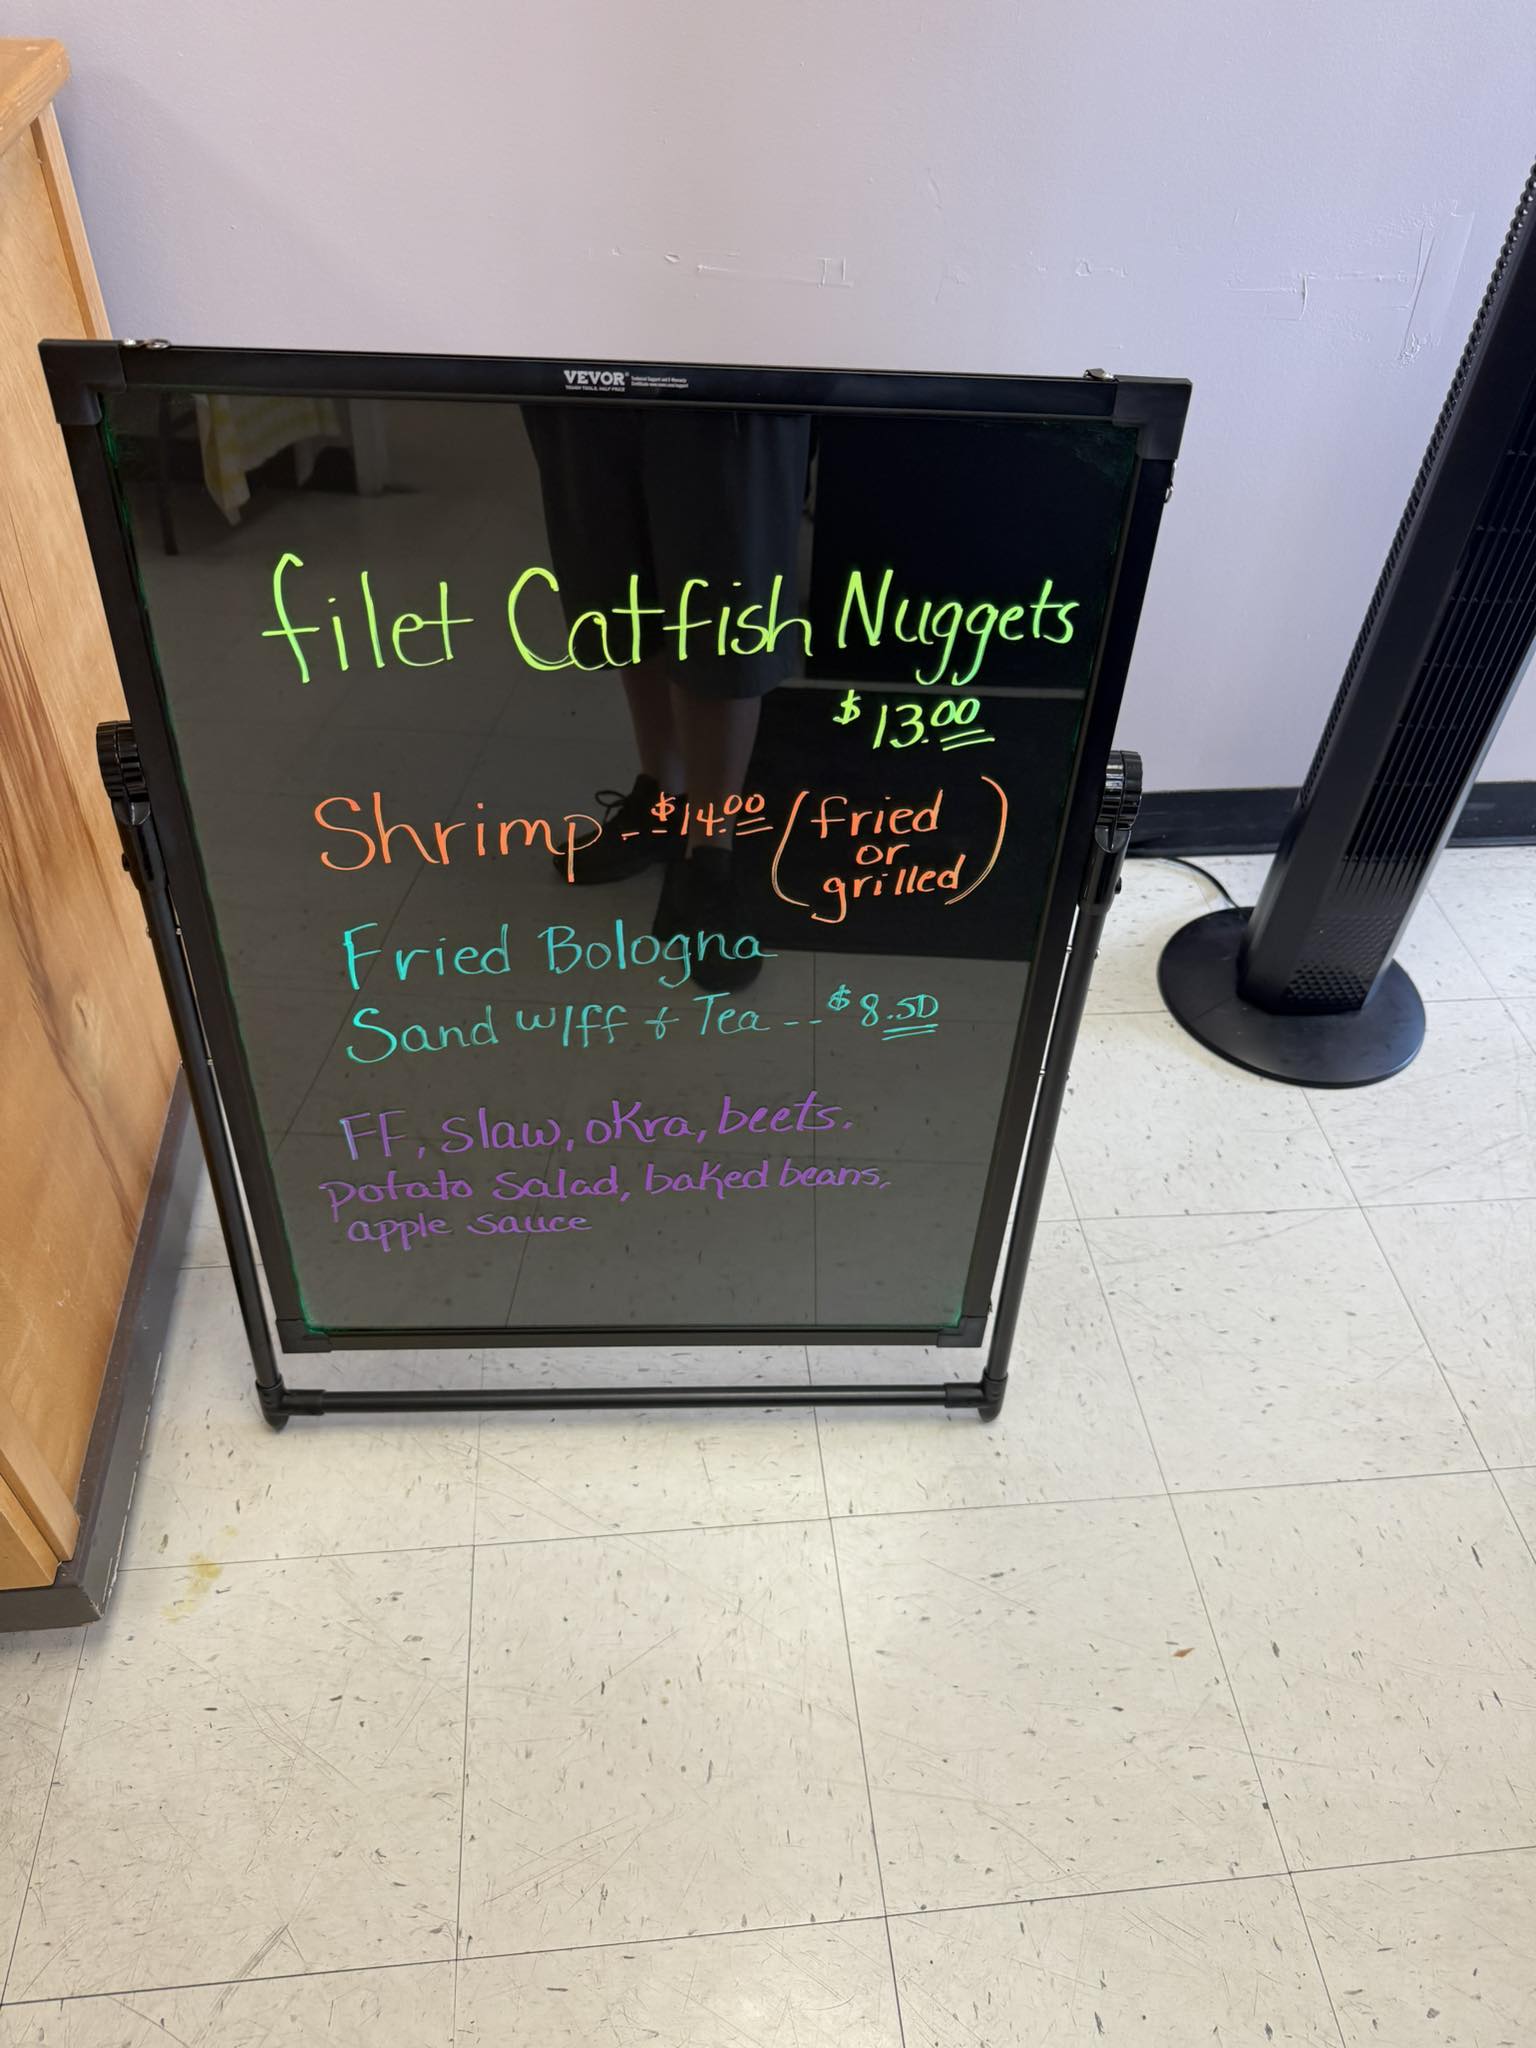 VEVOR
TOUGH TOOLS, HALF PRICE
filet Catfish Nuggets
$13.00
Shrimp - $14.00 (fried
or
grilled)
Fried Bologna
Sand w/ff & Tea -- $8.50
FF, slaw, okra, beets,
potato salad, baked beans,
apple sauce